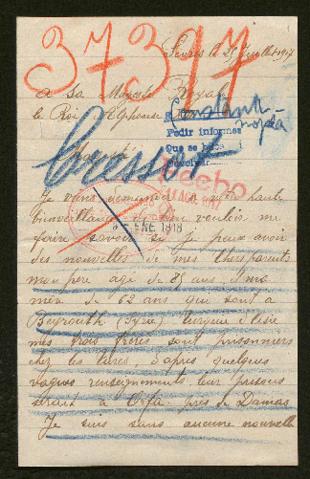 37397
Sèvres le 29 Juillet 1917
A sa Majesté Royale
le Roi Alphonse
Constant-
nopla
Pedir informes
Que se haga
Cressot
Hecho
ENE 1918
Je viens demander à votre haute
bienveillance de bien vouloir me
faire savoir si je peux avoir
des nouvelles de mes chers parents
mon père agé de 85 ans & ma
mère de 62 ans qui sont à
Beyrouth, Syrie, Turquie d'Asie
mes trois frères sont prisonniers
chez les turcs d'après quelques
vagues renseignements leur prison
serait à Orfa près de Damas
Je suis sans aucune nouvelle